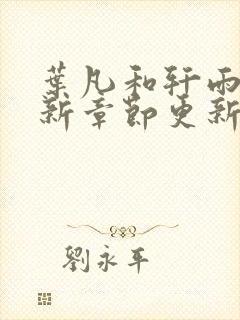 葉凡和轩雨
新章節更新
劉永平